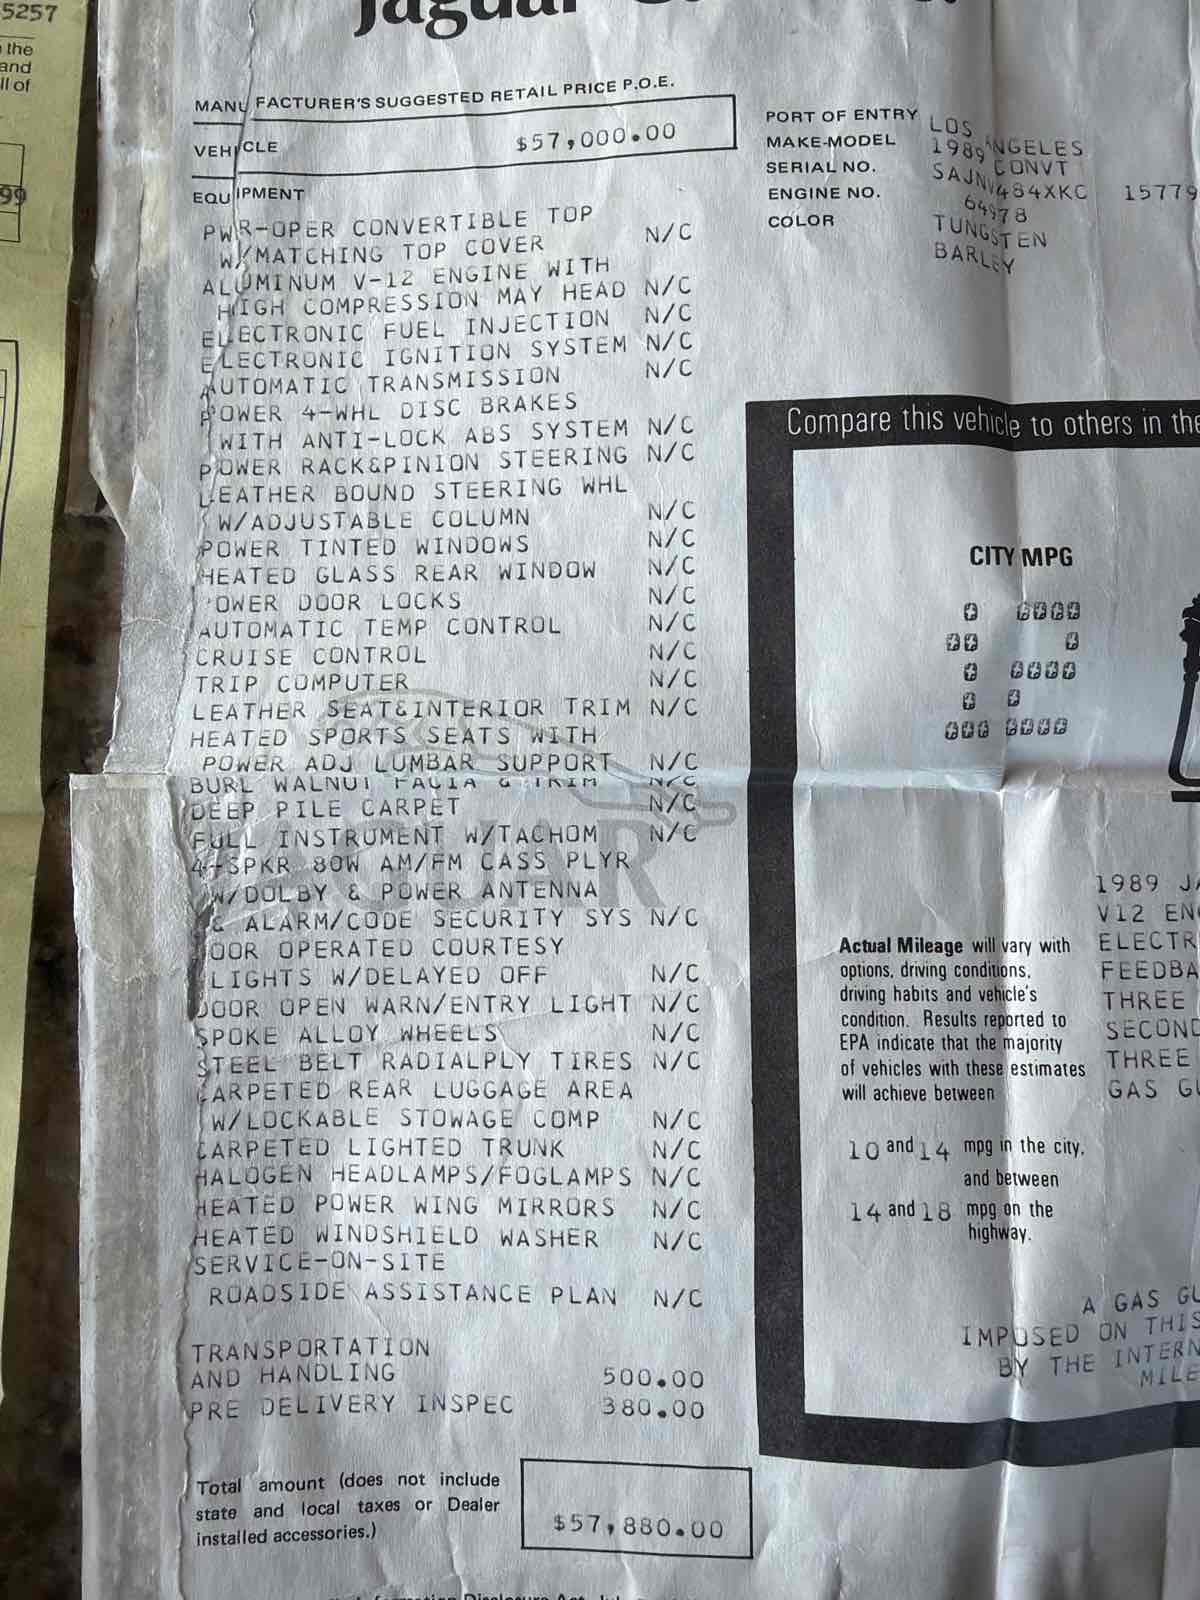 5257
the
and
ll of
99
Jaguar
MANUFACTURER'S SUGGESTED RETAIL PRICE P.O.E.
VEHICLE $57,000.00
EQUIPMENT
PWR-OPER CONVERTIBLE TOP
W/MATCHING TOP COVER N/C
ALUMINUM V-12 ENGINE WITH
HIGH COMPRESSION MAY HEAD N/C
ELECTRONIC FUEL INJECTION N/C
ELECTRONIC IGNITION SYSTEM N/C
AUTOMATIC TRANSMISSION N/C
POWER 4-WHL DISC BRAKES
WITH ANTI-LOCK ABS SYSTEM N/C
POWER RACK&PINION STEERING N/C
LEATHER BOUND STEERING WHL
W/ADJUSTABLE COLUMN N/C
POWER TINTED WINDOWS N/C
HEATED GLASS REAR WINDOW N/C
POWER DOOR LOCKS N/C
AUTOMATIC TEMP CONTROL N/C
CRUISE CONTROL N/C
TRIP COMPUTER N/C
LEATHER SEAT&INTERIOR TRIM N/C
HEATED SPORTS SEATS WITH
POWER ADJ LUMBAR SUPPORT N/C
BURL WALNUT FACIA & TRIM N/C
DEEP PILE CARPET N/C
FULL INSTRUMENT W/TACHOM N/C
4-SPKR 80W AM/FM CASS PLYR
W/DOLBY & POWER ANTENNA
& ALARM/CODE SECURITY SYS N/C
DOOR OPERATED COURTESY
LIGHTS W/DELAYED OFF N/C
DOOR OPEN WARN/ENTRY LIGHT N/C
SPOKE ALLOY WHEELS N/C
STEEL BELT RADIALPLY TIRES N/C
CARPETED REAR LUGGAGE AREA
W/LOCKABLE STOWAGE COMP N/C
CARPETED LIGHTED TRUNK N/C
HALOGEN HEADLAMPS/FOGLAMPS N/C
HEATED POWER WING MIRRORS N/C
HEATED WINDSHIELD WASHER N/C
SERVICE-ON-SITE
ROADSIDE ASSISTANCE PLAN N/C
TRANSPORTATION
AND HANDLING 500.00
PRE DELIVERY INSPEC 380.00
Total amount (does not include
state and local taxes or Dealer
installed accessories.)
$57,880.00
PORT OF ENTRY LOS ANGELES
MAKE-MODEL 1989 CONVT
SERIAL NO. SAJNV484XKC 15779
ENGINE NO. 64978
COLOR TUNGSTEN
BARLEY
Compare this vehicle to others in the
CITY MPG
12
Actual Mileage will vary with
options, driving conditions,
driving habits and vehicle's
condition. Results reported to
EPA indicate that the majority
of vehicles with these estimates
will achieve between
10 and 14 mpg in the city,
and between
14 and 18 mpg on the
highway.
1989 JA
V12 EN
ELECTR
FEEDBA
THREE
SECOND
THREE
GAS GU
A GAS GU
IMPOSED ON THIS
BY THE INTERN
MILE